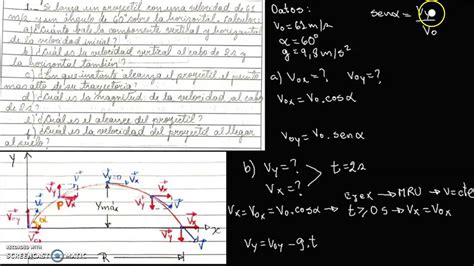 1.- Se lanza un proyectil con una velocidad de 61
m/s y un ángulo de 60° sobre la horizontal. Calcular:
a) ¿Cuánto vale la componente vertical y horizontal
de la velocidad inicial?
b) ¿Cuál es la velocidad vertical al cabo de 2s y
la horizontal también?
c) ¿En que instante alcanza el proyectil el punto
mas alto de su trayectoria?
d) ¿Cuál es la magnitud de la velocidad al cabo
de 2s?
e) ¿Cuál es el alcance del proyectil?
f) ¿Cuál es la velocidad del proyectil al llegar
al suelo?
Y
Vy
Vx
P
Ymax
Voy
Vox
α
X
R
Datos:
V₀ = 61 m/s
α = 60°
g = 9,8 m/s²
senα = Vo / Vo
a) Vox = ? Voy = ?
Vox = Vo . cosα
Voy = Vo . senα
b) Vy = ?
Vx = ?
> t = 2s
eje x → MRU → V = cte
Vx = Vox = Vo . cosα → t ≥ 0 s → Vx = Vox
Vy = Voy - g . t
RECORDED WITH
SCREENCAST MATIC